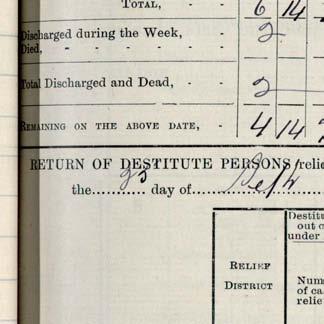 TOTAL, - - 6 14
Discharged during the Week, - 2
Died, - - - - - -
Total Discharged and Dead, - - 2
REMAINING ON THE ABOVE DATE, - 4 14
RETURN OF DESTITUTE PERSONS relie
the............23 day of..........
Destitu
out o
under
RELIEF
DISTRICT
Num
of ca
relie